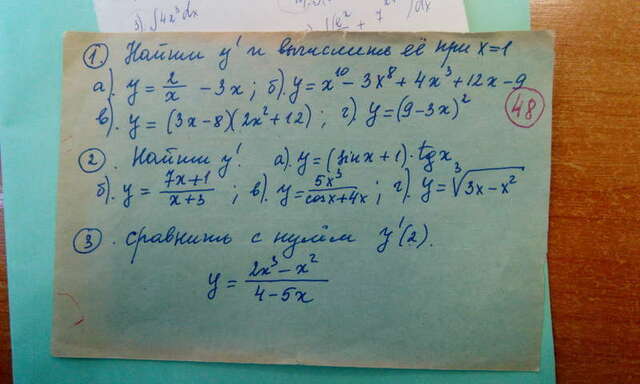 3). ∫4x³dx
dx
① Найти y' и вычислить её при x=1
а). y = 2/x - 3x; б). y = x¹⁰ - 3x⁸ + 4x³ + 12x - 9
в). y = (3x-8)(2x²+12); г). y = (9-3x)²
48
② . Найти y'. а). y = (sinx+1)·tgx
б). y = (7x+1)/(x+3) ; в). y = 5x³/(cosx+4x) ; г). y = ³√(3x-x²)
③ . Сравнить с нулём y'(2).
y = (2x³-x²)/(4-5x)